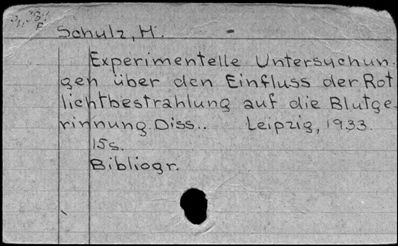 Schulz, H. -
Experimentelle Untersuchun-
gen über den Einfluss der Rot
lichtbestrahlung auf die Blutge-
rinnung. Diss.. Leipzig, 1933.
15s.
Bibliogr.